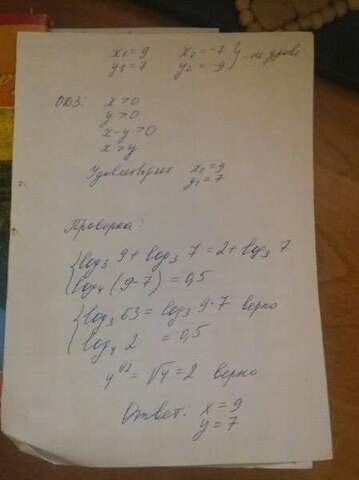 x₁=9 x₂=-7 } - не удовл
y₁=7 y₂=-9
ОДЗ: x>0
y>0
x-y>0
x>y
Удовлетворяет x₁=9
y₁=7
Проверка:
{ log₃ 9 + log₃ 7 = 2 + log₃ 7
log₄ (9-7) = 0,5
{ log₃ 63 = log₃ 9·7 верно
log₄ 2 = 0,5
4^1/2 = √4 = 2 верно
Ответ: x=9
y=7